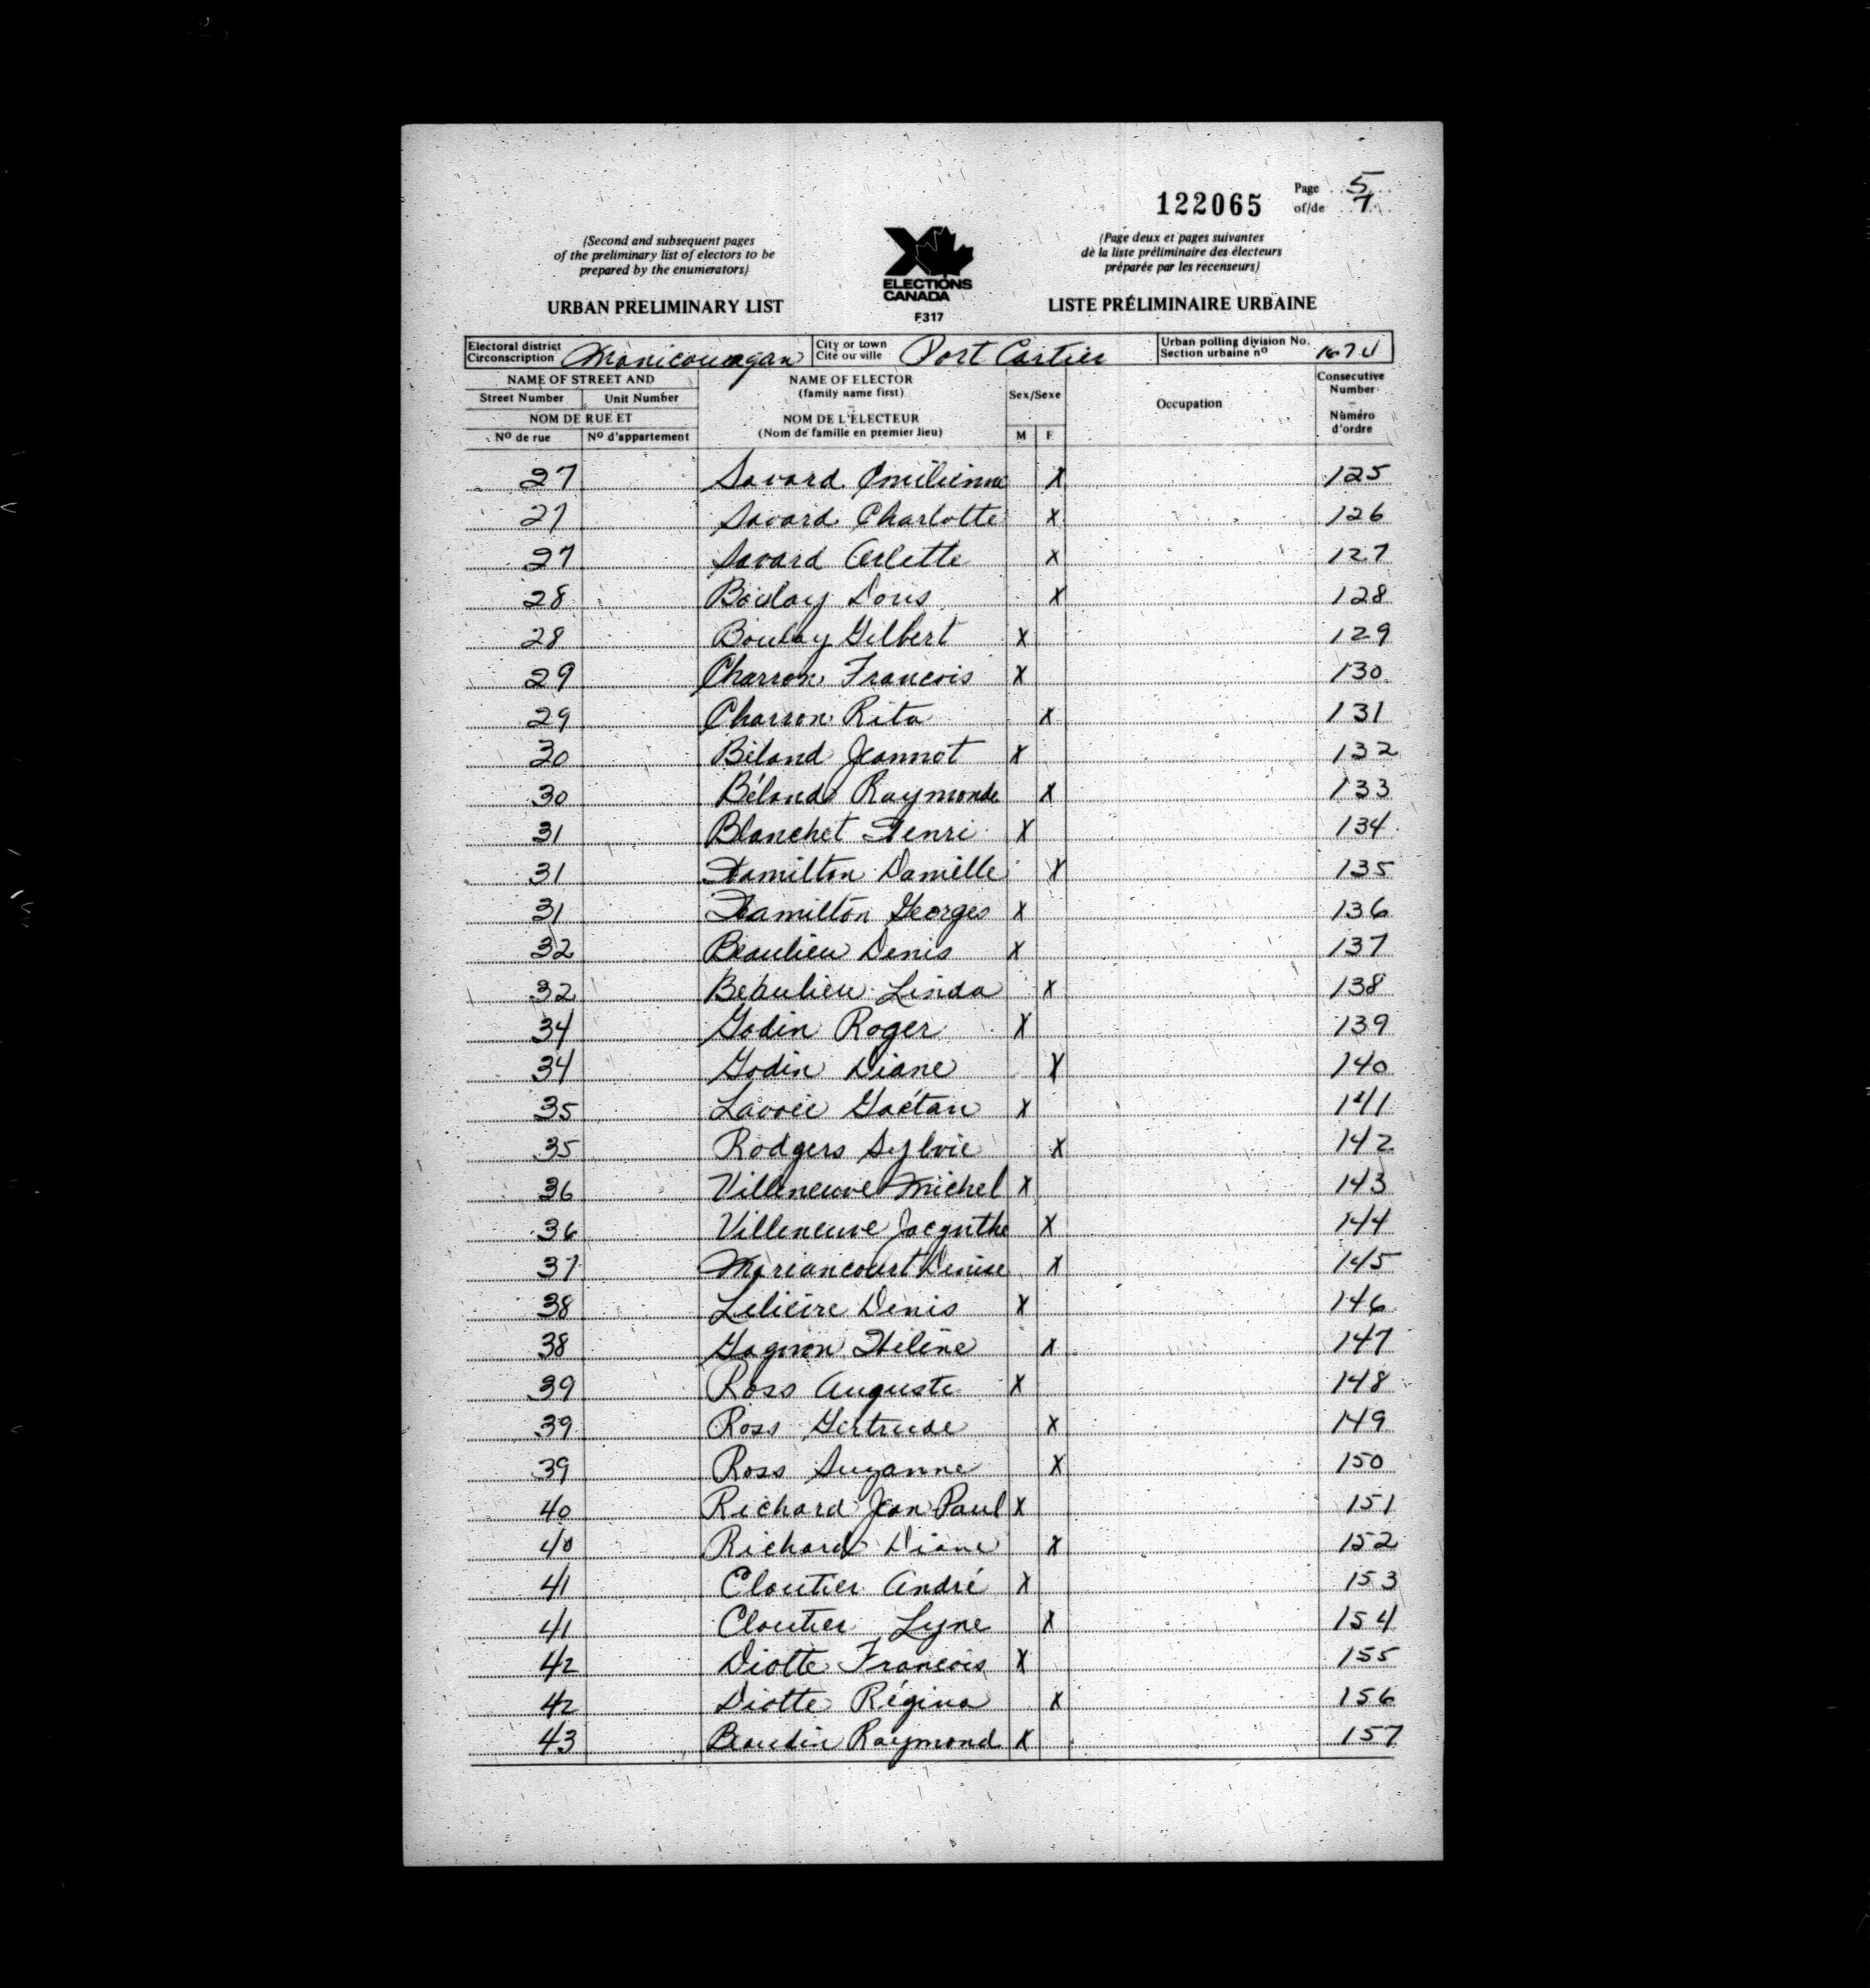 122065
Page 5
of/de 7
(Second and subsequent pages
of the preliminary list of electors to be
prepared by the enumerators)
URBAN PRELIMINARY LIST
ELECTIONS
CANADA
F317
(Page deux et pages suivantes
de la liste préliminaire des électeurs
préparée par les recenseurs)
LISTE PRÉLIMINAIRE URBAINE
Electoral district
Circonscription Manicouagan
City or town
Cité ou ville Port Cartier
Urban polling division No.
Section urbaine nº
NAME OF STREET AND
Street Number Unit Number
NOM DE RUE ET
Nº de rue Nº d'appartement
NAME OF ELECTOR
(family name first)
NOM DE L'ÉLECTEUR
(Nom de famille en premier lieu)
Sex/Sexe
M F
Occupation
Consecutive
Number
Numéro
d'ordre
27 Savard Émilienne X 125
27 Savard Charlotte X 126
27 Savard Arlette X 127
28 Boulay Doris X 128
28 Boulay Gilbert X 129
29 Charron Francois X 130
29 Charron Rita X 131
30 Béland Jeannot X 132
30 Béland Raymonde X 133
31 Blanchet Henri X 134
31 Hamilton Danielle X 135
31 Hamilton Georges X 136
32 Beaulieu Denis X 137
32 Beaulieu Linda X 138
34 Godin Roger X 139
34 Godin Diane X 140
35 Lavoie Gaétan X 141
35 Rodgers Sylvie X 142
36 Villeneuve Michel X 143
36 Villeneuve Jacynthe X 144
37 Moriancourt Denise X 145
38 Denis X 146
38 Gagnon Hélène X 147
39 Ross Auguste X 148
39 Ross Gertrude X 149
39 Ross Suzanne X 150
40 Richard Jean Paul X 151
40 Richard Diane X 152
41 Cloutier André X 153
41 Cloutier Lyne X 154
42 Diotte Francois X 155
42 Diotte Régina X 156
43 Beaudin Raymond X 157